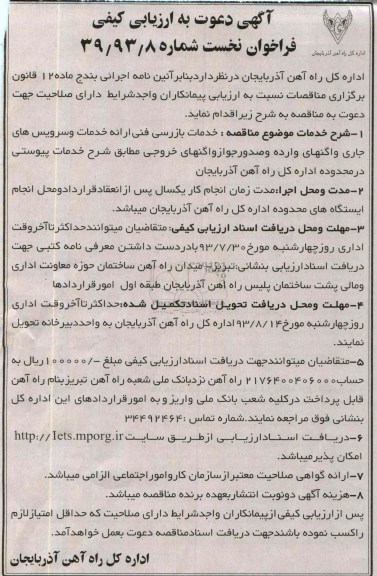 آگهی دعوت به ارزیابی کیفی
فراخوان نخست شماره ۳۹٫۹۳٫۸
اداره کل راه آهن آذربایجان
اداره کل راه آهن آذربایجان درنظرداردبنابرآئین نامه اجرائی بندج ماده۱۲ قانون
برگزاری مناقصات نسبت به ارزیابی پیمانکاران واجدشرایط دارای صلاحیت جهت
دعوت به مناقصه به شرح زیراقدام نماید.
۱-شرح خدمات موضوع مناقصه : خدمات بازرسی فنی ارائه خدمات وسرویس های
جاری واگنهای وارده وصدورجوازواگنهای خروجی مطابق شرح خدمات پیوستی
درمحدوده اداره کل راه آهن آذربایجان
۲-مدت ومحل اجرا:مدت زمان انجام کار یکسال پس ازانعقادقراردادومحل انجام
ایستگاه های محدوده اداره کل راه آهن آذربایجان میباشد.
۳-مهلت ومحل دریافت اسناد ارزیابی کیفی: متقاضیان میتوانندحداکثرتاآخروقت
اداری روزچهارشنبه مورخ۹۳/۷/۳۰بادردست داشتن معرفی نامه کتبی جهت
دریافت اسنادارزیابی بنشانی:تبریز، میدان راه آهن ساختمان حوزه معاونت اداری
ومالی پشت ساختمان پلیس راه آهن آذربایجان طبقه اول امورقراردادها
۴-مهلت ومحل دریافت تحویل اسنادتکمیل شده:حداکثرتاآخروقت اداری
روزچهارشنبه مورخ۹۳/۸/۱۴اداره کل راه آهن آذربایجان به واحددبیرخانه تحویل
نمایند.
۵-متقاضیان میتوانندجهت دریافت اسنادارزیابی کیفی مبلغ -/۱۰۰۰۰۰ریال به
حساب۲۱۷۶۴۰۰۴۰۶۰۰۰ راه آهن نزدبانک ملی شعبه راه آهن تبریزبنام راه آهن
قابل پرداخت درکلیه شعب بانک ملی واریزو به امورقراردادهای این اداره کل
بنشانی فوق مراجعه نمایند.شماره تماس :۳۴۴۹۲۴۶۴
۶-دریافت اسنادارزیابی ازطریق سایت http://Iets.mporg.ir
امکان پذیرمیباشد.
۷-ارائه گواهی صلاحیت معتبرازسازمان کارواموراجتماعی الزامی میباشد.
۸-هزینه آگهی دونوبت انتشاربعهده برنده مناقصه میباشد.
پس ازارزیابی کیفی ازپیمانکاران واجدشرایط دارای صلاحیت که حداقل امتیازلازم
راکسب نموده باشندجهت دریافت اسنادمناقصه دعوت بعمل خواهدآمد.
اداره کل راه آهن آذربایجان